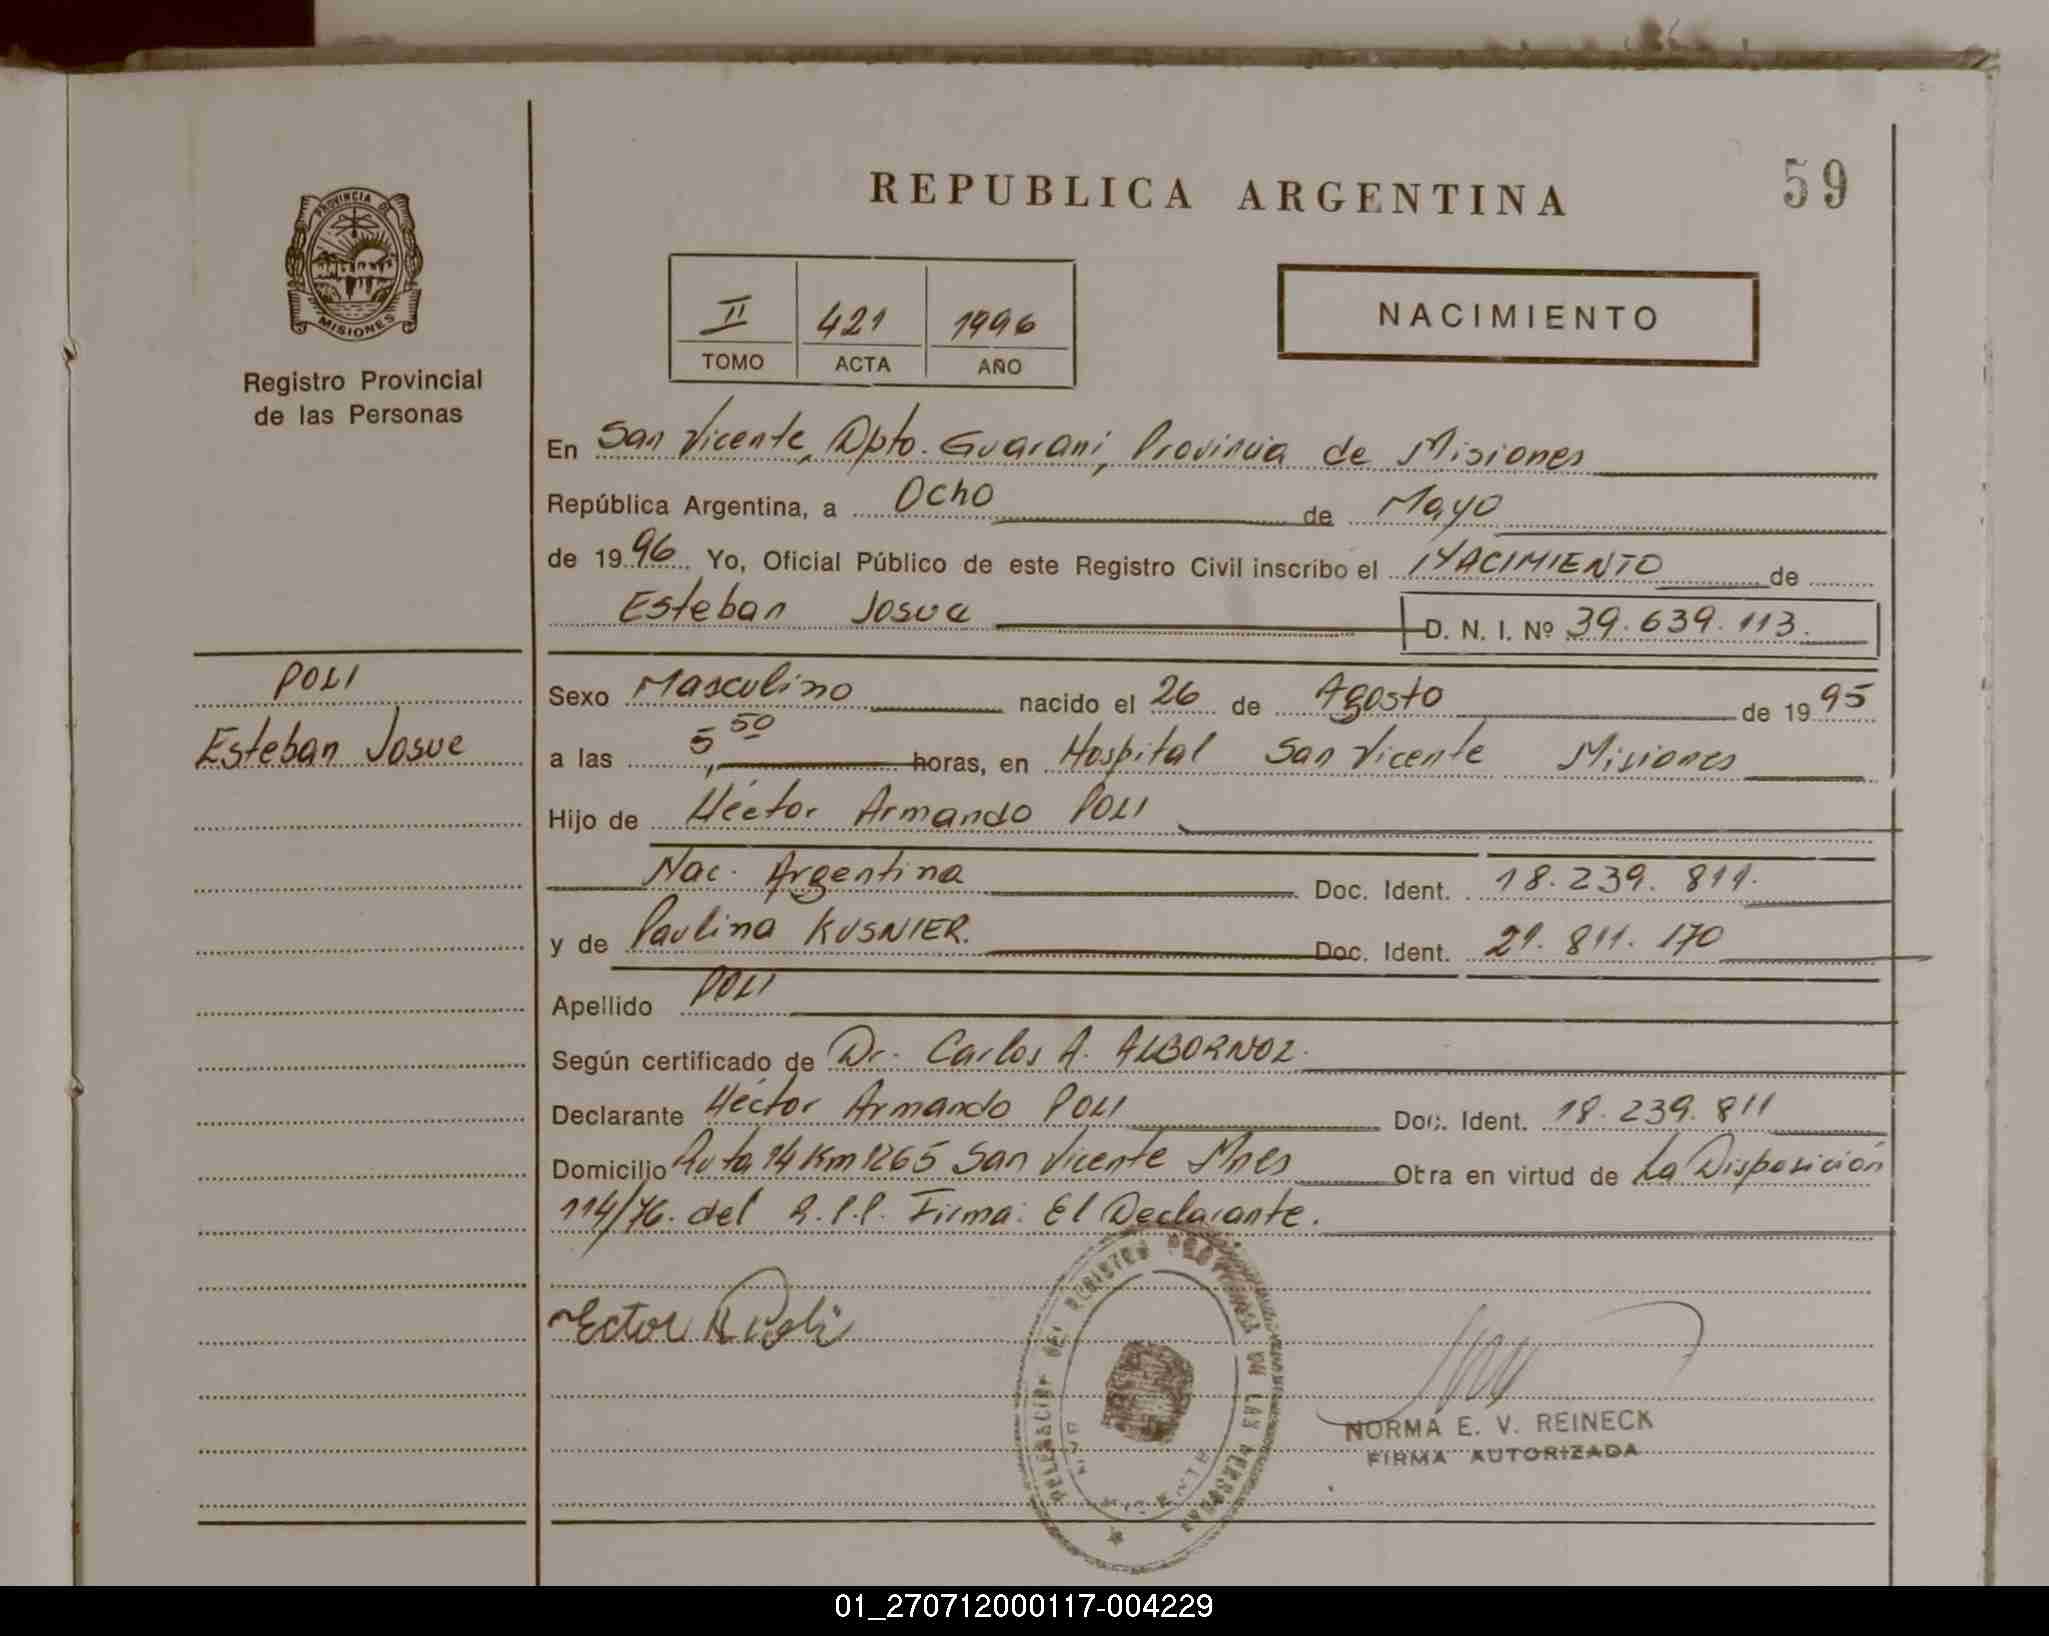 REPUBLICA ARGENTINA
59
PROVINCIA DE
MISIONES
Registro Provincial
de las Personas
II 421 1996
TOMO ACTA AÑO
NACIMIENTO
En San Vicente, Dpto. Guarani, Provincia de Misiones
República Argentina, a Ocho de Mayo
de 1996 Yo, Oficial Público de este Registro Civil inscribo el NACIMIENTO de
Esteban Josue D. N. I. Nº 39.639.113.
POLI
Esteban Josue
Sexo Masculino nacido el 26 de Agosto de 1995
a las 5,50 horas, en Hospital San Vicente Misiones
Hijo de Héctor Armando POLI
Nac. Argentina Doc. Ident. 18.239.811.
y de Paulina KUSNIER. Doc. Ident. 21.811.170
Apellido POLI
Según certificado de Dr. Carlos A. ALBORNOZ.
Declarante Héctor Armando POLI Doc. Ident. 18.239.811
Domicilio Ruta 14 Km 1265 San Vicente Mnes Otra en virtud de La Disposición
114/76. del R.P.P. Firma: El Declarante.
Hector A Poli
DELEGACION DEL REGISTRO PROVINCIAL DE LAS PERSONAS
NORMA E. V. REINECK
FIRMA AUTORIZADA
01_270712000117-004229